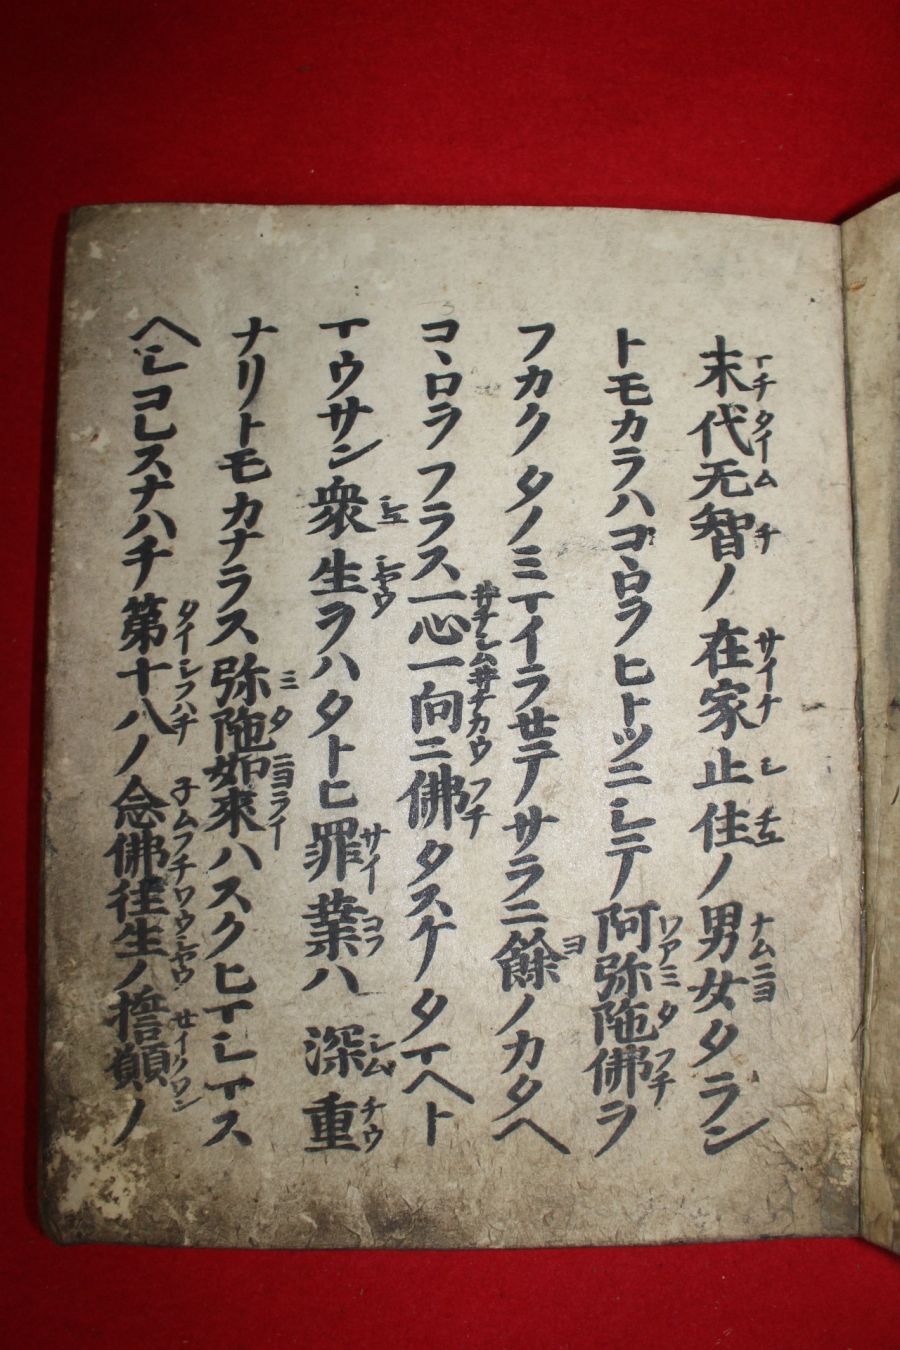 末代无智ノ在家止住ノ男女タラン
トモカラハコヽロヲヒトツニシテ阿弥陁佛ヲ
フカクタノミマイラセテサラニ餘ノカタヘ
コヽロヲフラス一心一向ニ佛タスケタマヘト
マウサン衆生ヲハタトヒ罪業ハ深重
ナリトモカナラス弥陁如來ハスクヒマシマス
ヘシコレスナハチ第十八ノ念佛徃生ノ誓願ノ